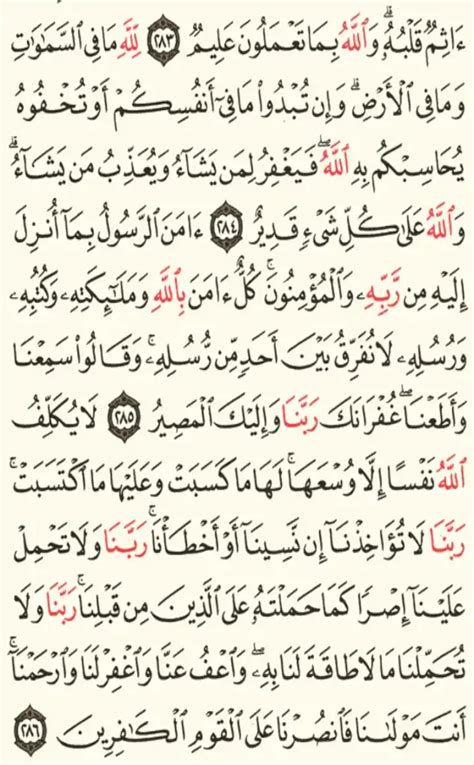 ءَاثِمٞ قَلۡبُهُۥۗ وَٱللَّهُ بِمَا تَعۡمَلُونَ عَلِيمٞ ٢٨٣ لِّلَّهِ مَا فِي ٱلسَّمَٰوَٰتِ
وَمَا فِي ٱلۡأَرۡضِۗ وَإِن تُبۡدُواْ مَا فِيٓ أَنفُسِكُمۡ أَوۡ تُخۡفُوهُ
يُحَاسِبۡكُم بِهِ ٱللَّهُۖ فَيَغۡفِرُ لِمَن يَشَآءُ وَيُعَذِّبُ مَن يَشَآءُۗ
وَٱللَّهُ عَلَىٰ كُلِّ شَيۡءٖ قَدِيرٌ ٢٨٤ ءَامَنَ ٱلرَّسُولُ بِمَآ أُنزِلَ
إِلَيۡهِ مِن رَّبِّهِۦ وَٱلۡمُؤۡمِنُونَۚ كُلٌّ ءَامَنَ بِٱللَّهِ وَمَلَٰٓئِكَتِهِۦ وَكُتُبِهِۦ
وَرُسُلِهِۦ لَا نُفَرِّقُ بَيۡنَ أَحَدٖ مِّن رُّسُلِهِۦۚ وَقَالُواْ سَمِعۡنَا
وَأَطَعۡنَاۖ غُفۡرَانَكَ رَبَّنَا وَإِلَيۡكَ ٱلۡمَصِيرُ ٢٨٥ لَا يُكَلِّفُ
ٱللَّهُ نَفۡسًا إِلَّا وُسۡعَهَاۚ لَهَا مَا كَسَبَتۡ وَعَلَيۡهَا مَا ٱكۡتَسَبَتۡۗ
رَبَّنَا لَا تُؤَاخِذۡنَآ إِن نَّسِينَآ أَوۡ أَخۡطَأۡنَاۚ رَبَّنَا وَلَا تَحۡمِلۡ
عَلَيۡنَآ إِصۡرٗا كَمَا حَمَلۡتَهُۥ عَلَى ٱلَّذِينَ مِن قَبۡلِنَاۚ رَبَّنَا وَلَا
تُحَمِّلۡنَا مَا لَا طَاقَةَ لَنَا بِهِۦۖ وَٱعۡفُ عَنَّا وَٱغۡفِرۡ لَنَا وَٱرۡحَمۡنَآۚ
أَنتَ مَوۡلَىٰنَا فَٱنصُرۡنَا عَلَى ٱلۡقَوۡمِ ٱلۡكَٰفِرِينَ ٢٨٦